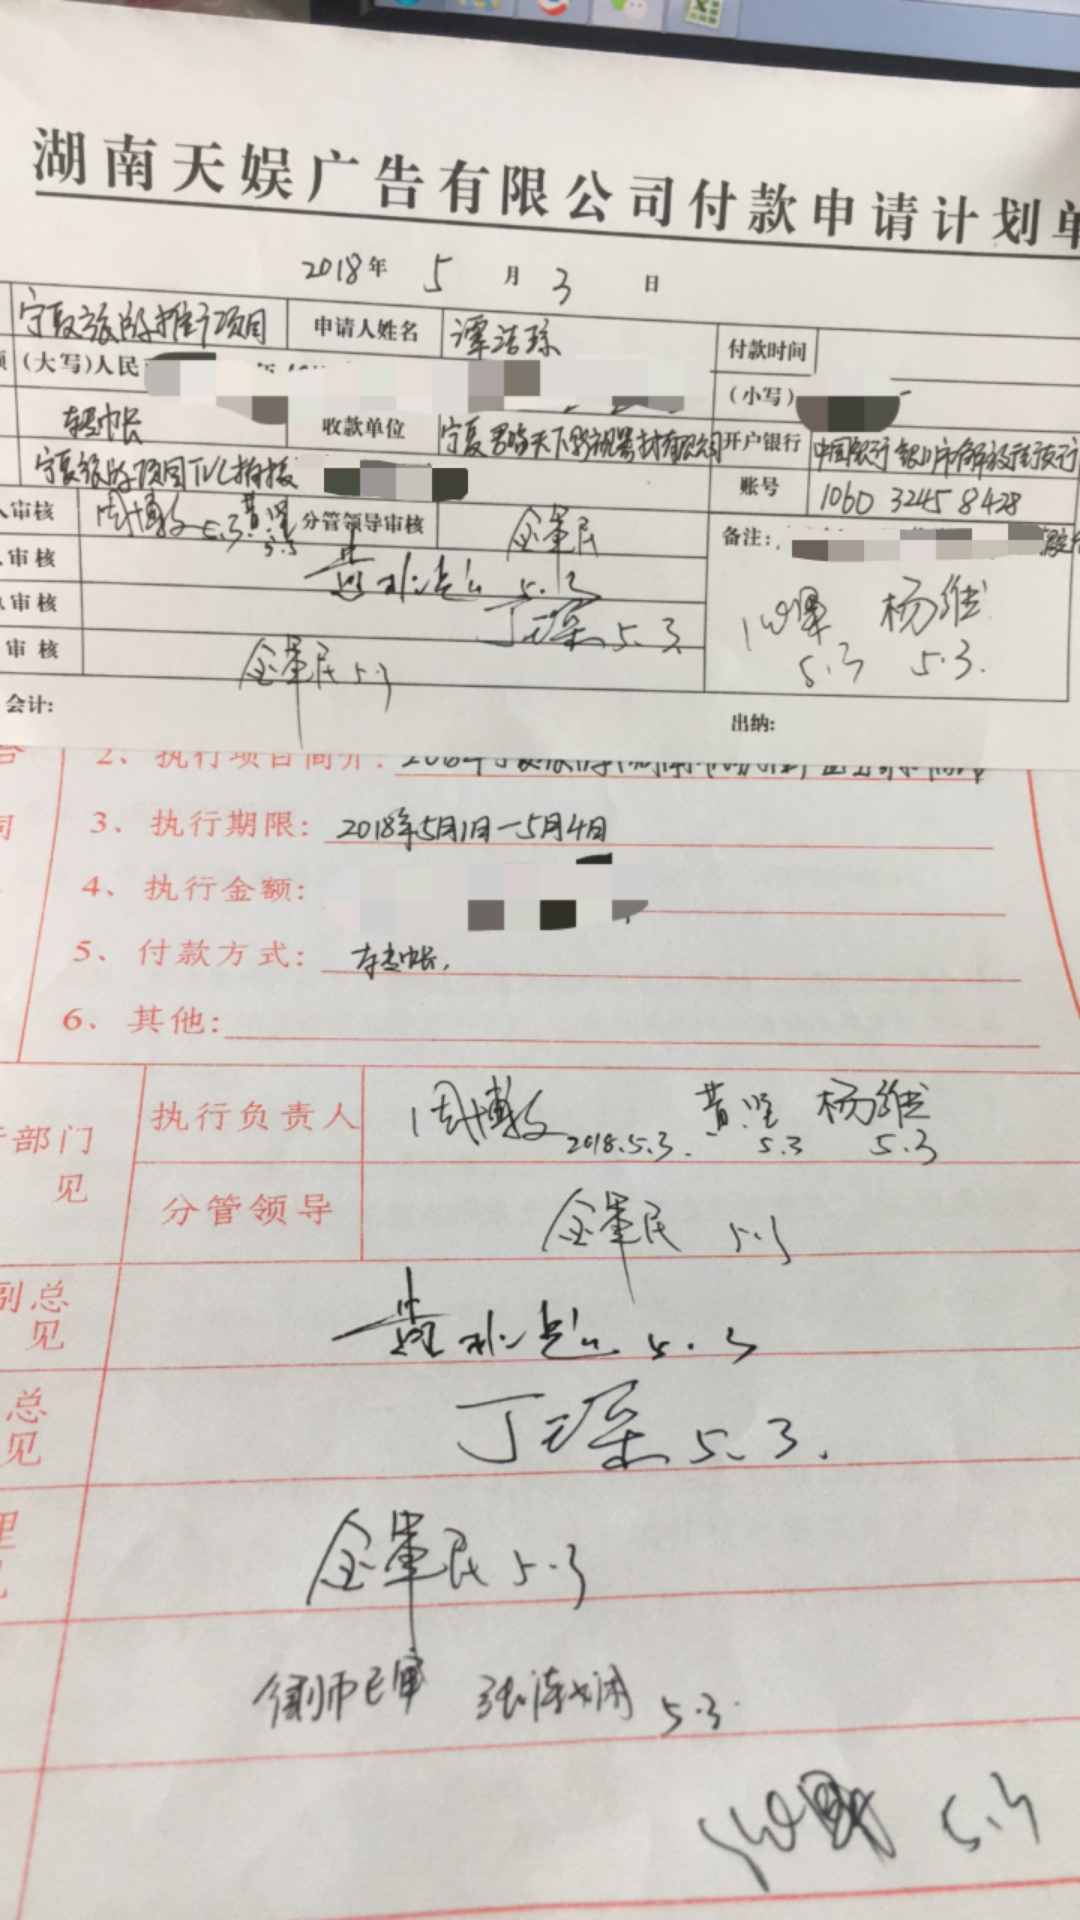 湖南天娱广告有限公司付款申请计划单
2018年 5 月 3 日
宁夏旅游推广项目 申请人姓名 谭洁琼 付款时间
(大写)人民 (小写)
转帐 收款单位 宁夏 天下影视器材有限公司 开户银行 中国银行银川市解放街支行
宁夏旅游项目TVC拍摄 账号 1060 3245 8428
审核 周博文 5.3 黄坚 5.3 分管领导审核 金军民 备注:
审核 5.3
审核 丁琛 5.3 杨维 5.3 5.3.
审核 金军民 5.3
会计: 出纳:
2、执行项目简介:
3、执行期限: 2018年5月1日-5月4日
4、执行金额:
5、付款方式: 转帐.
6、其他:
部门 见 执行负责人 周博文 2018.5.3. 黄坚 5.3 杨维 5.3
分管领导 金军民 5.3
副总 见 5.3
总 见 丁琛 5.3.
金军民 5.3
律师已审 5.3.
5.3